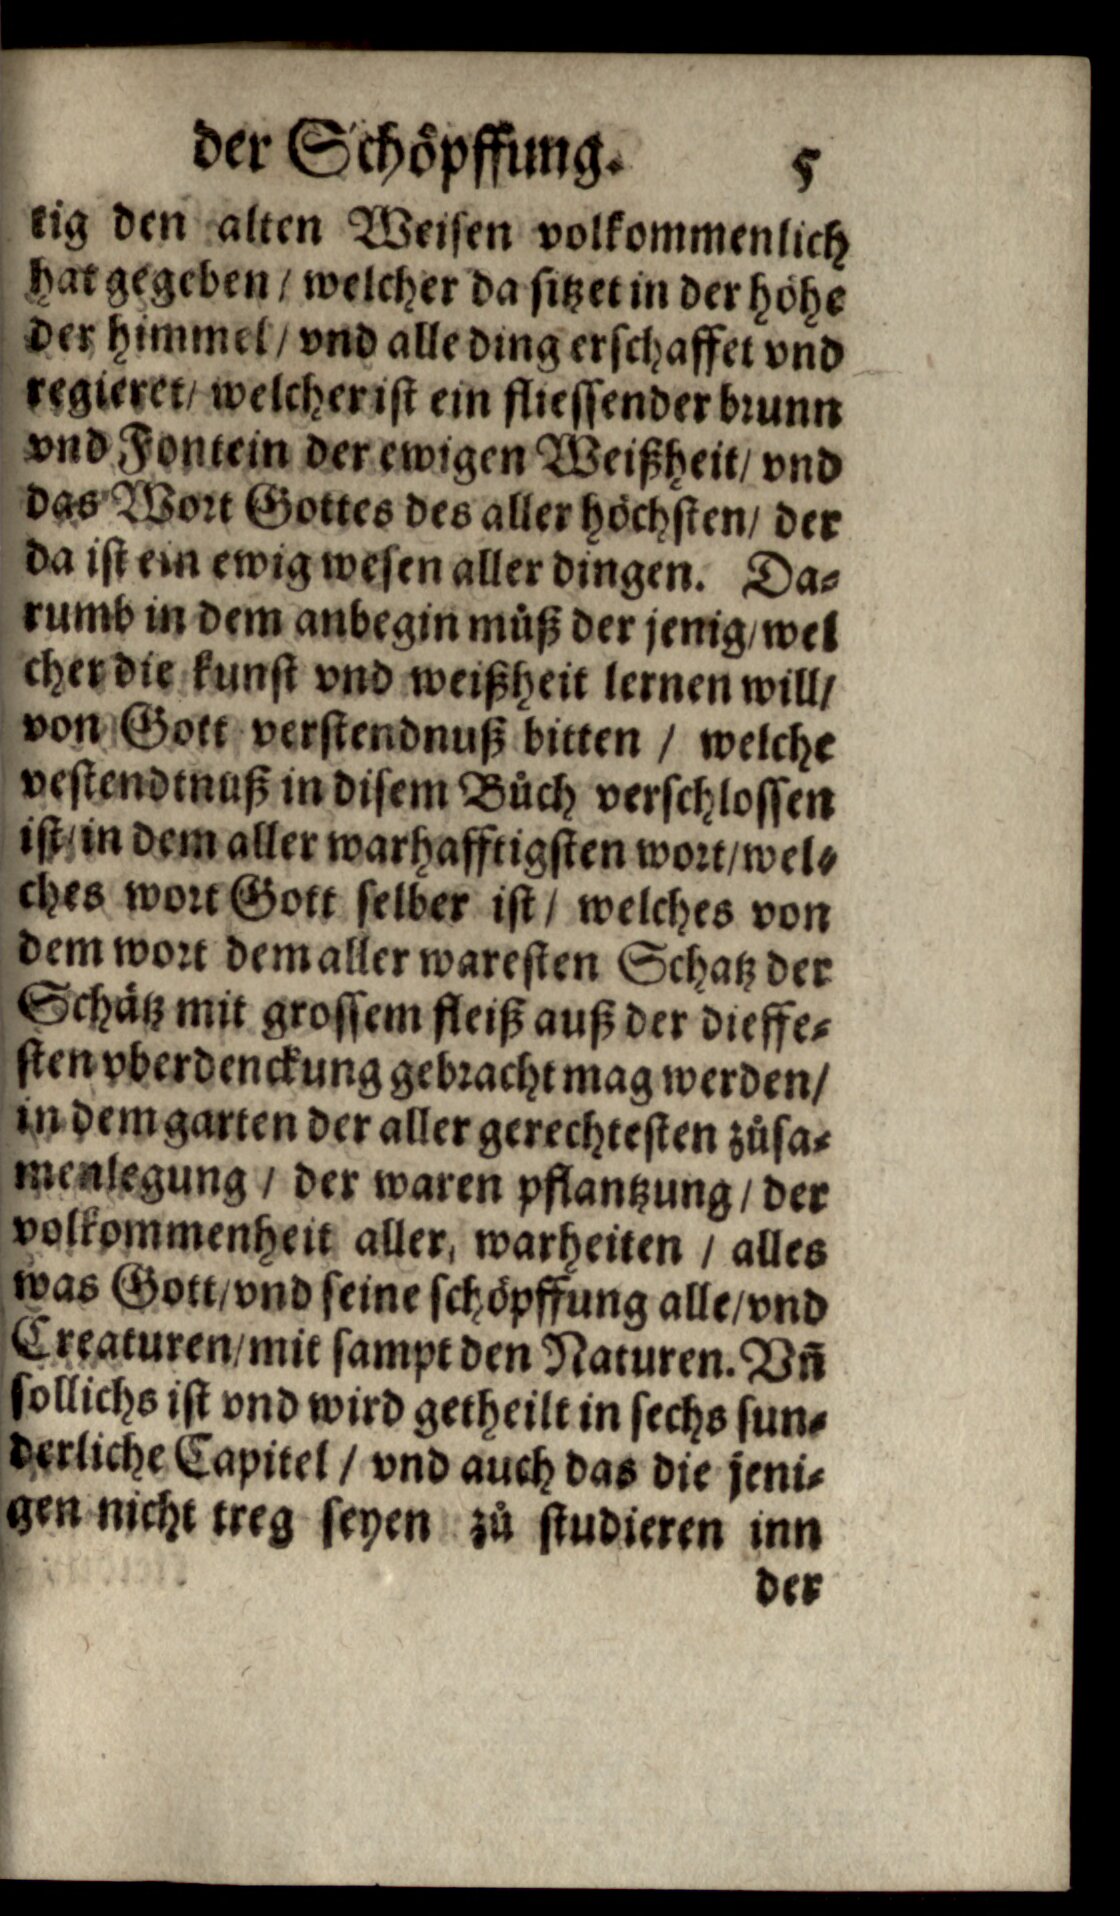 der Schöpffung. 5
tig den alten Weisen volkommenlich
hat gegeben / welcher da sitzet in der höhe
der himmel / vnd alle ding erschaffet vnd
regieret / welcher ist ein fliessender brunn
vnd Fontein der ewigen Weißheit / vnd
das Wort Gottes des aller höchsten / der
da ist ein ewig wesen aller dingen. Da-
rumb in dem anbegin můß der jenig / wel
cher die kunst vnd weißheit lernen will /
von Gott verstendnuß bitten / welche
vestendtnuß in disem Bůch verschlossen
ist / in dem aller warhafftigsten wort / wel-
ches wort Gott selber ist / welches von
dem wort dem aller waresten Schatz der
Schätz mit grossem fleiß auß der dieffe-
sten vberdenckung gebracht mag werden /
in dem garten der aller gerechtesten zůsa-
menlegung / der waren pflantzung / der
volkommenheit aller, warheiten / alles
was Gott / vnd seine schöpffung alle / vnd
Creaturen / mit sampt den Naturen. Vñ
sollichs ist vnd wird getheilt in sechs sun-
derliche Capitel / vnd auch das die jeni-
gen nicht treg seyen zů studieren inn
der